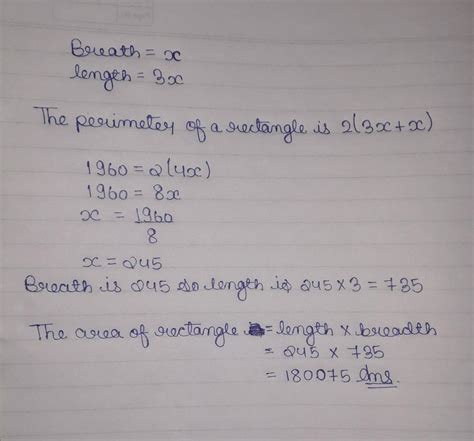 Breath = x
length = 3x
The perimeter of a rectangle is 2(3x+x)
1960 = 2(4x)
1960 = 8x
x = 1960
8
x = 245
Breath is 245 so length is 245 x 3 = 735
The area of rectangle = length x breadth
= 245 x 735
= 180075 Ans.